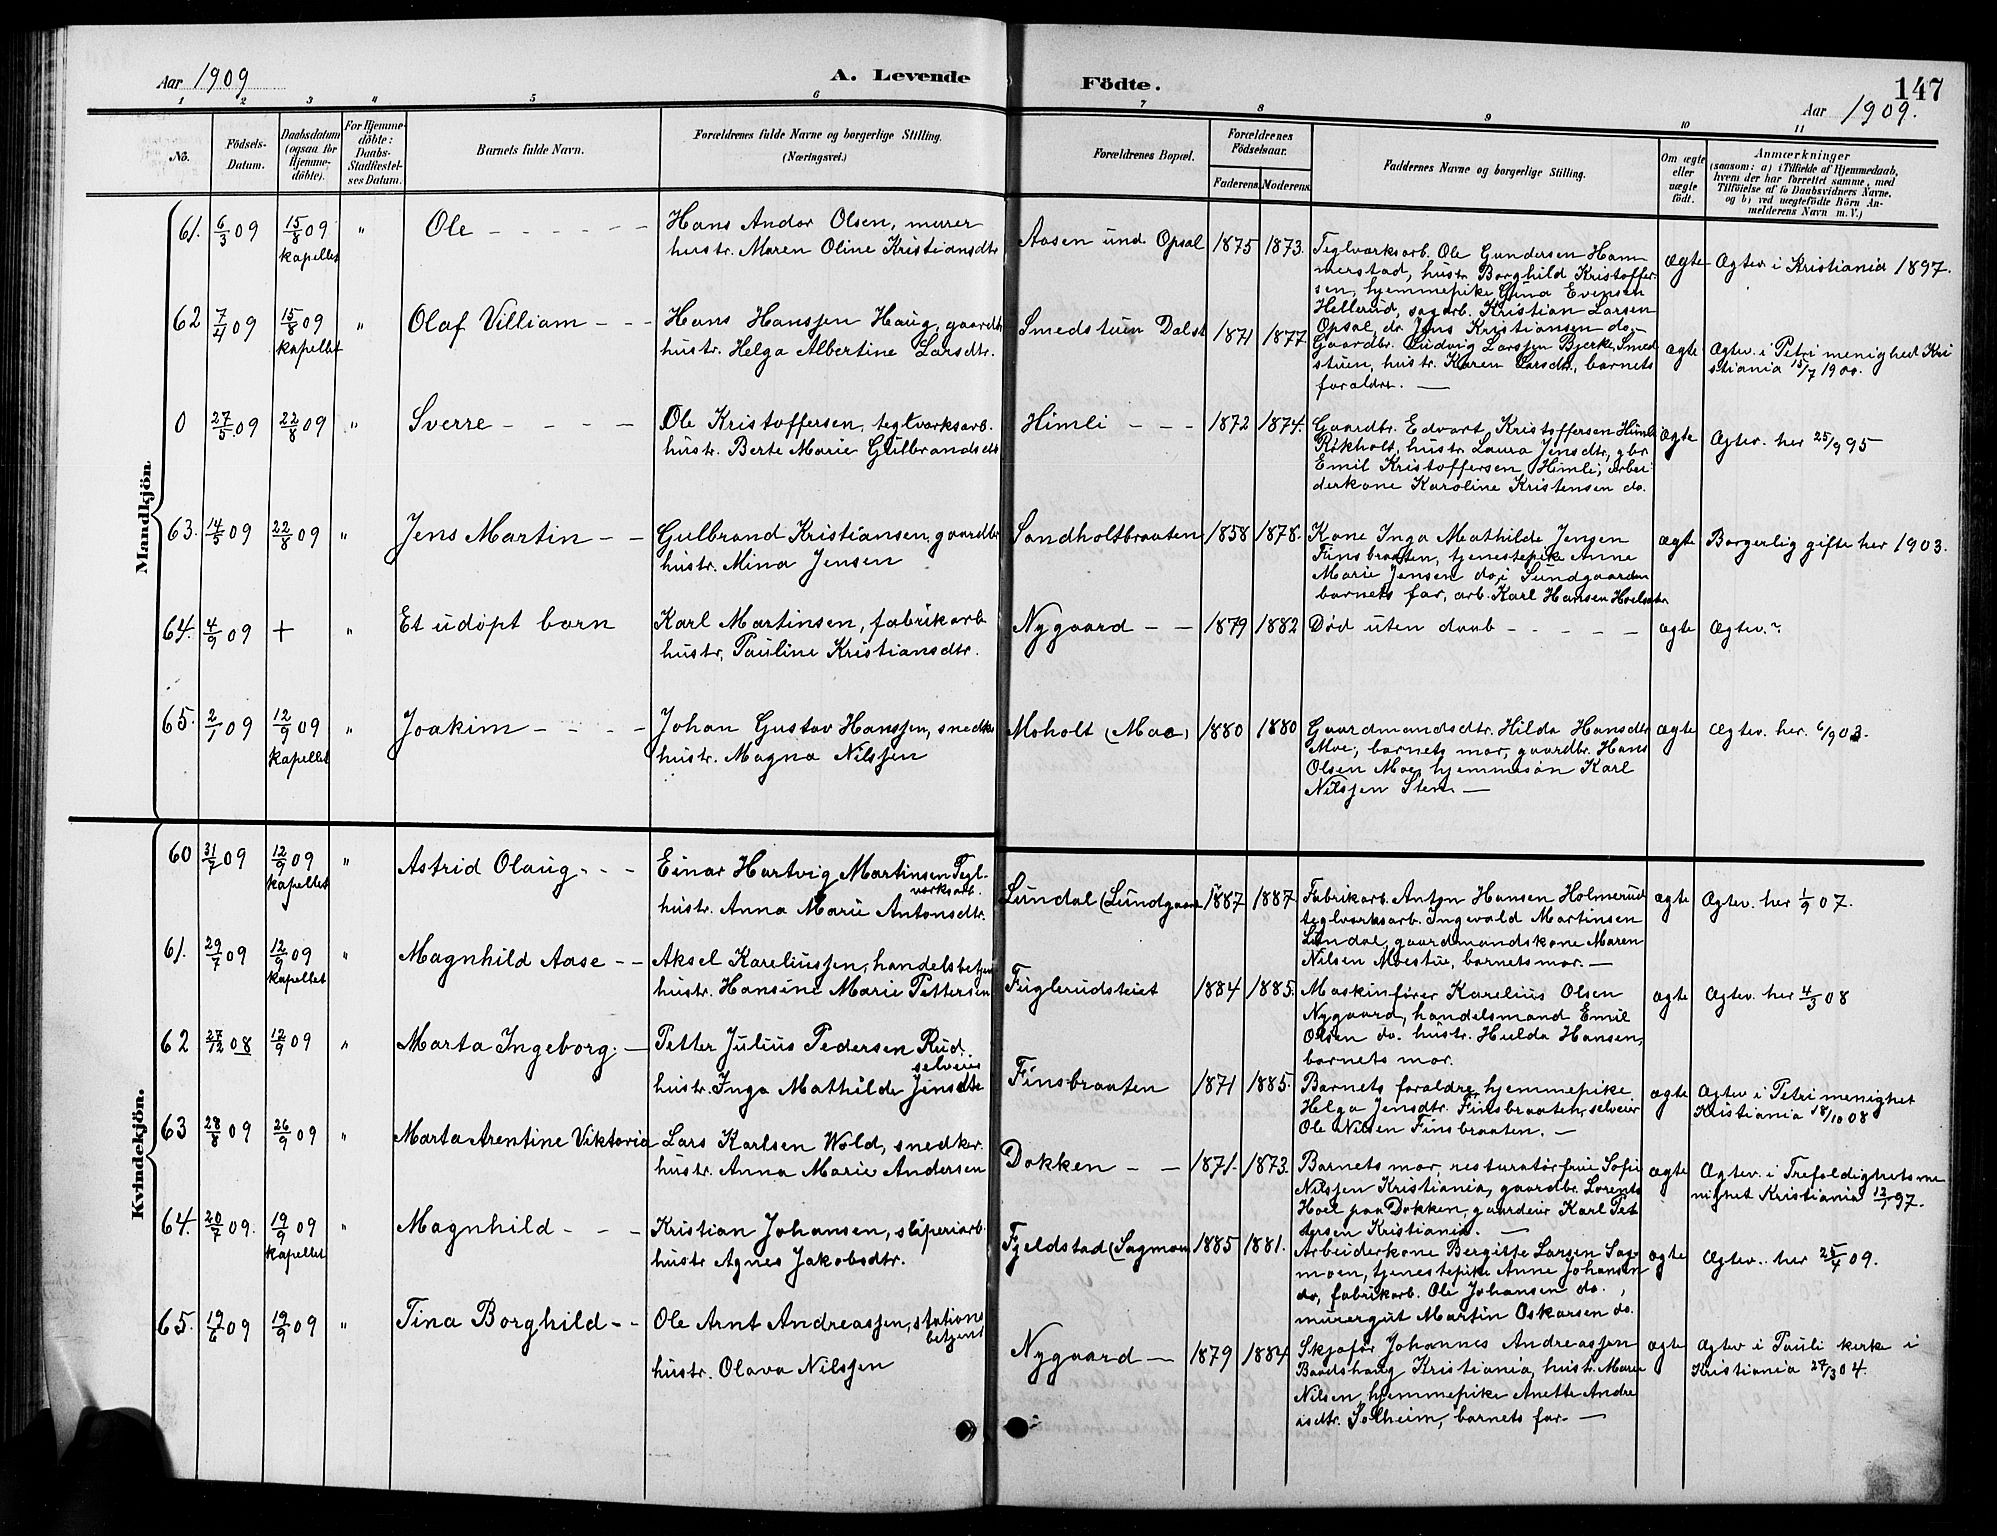 Aar 1909
A. Levende
Födte.
147
Aar 1909.
1 2 3 4 5 6 7 8 9 10 11
No.
Födsels-
Datum.
Daabsdatum
(ogsaa for
Hjemme-
döbte).
For Hjemme-
döbte:
Daabs-
Stadfæstel-
ses Datum.
Barnets fulde Navn.
Forældrenes fulde Navne og borgerlige Stilling.
(Næringsvei.)
Forældrenes Bopæl.
Forældrenes
Födselsaar.
Faderens. Moderens.
Faddernes Navne og borgerlige Stilling.
Om ægte
eller
uægte
født.
Anmærkninger
(saasom: a) i Tilfælde af Hjemmedaab,
hvem der har forrettet samme, med
Tilföielse af to Daabsvidners Navne,
og b) ved uægtefödte Börn An-
melderens Navn m. V.)
Mandkjön.
61. 6/3 09 15/8 09 " Ole - - - - - -
kapellet
Hans Andor Olsen, murer
hustr. Maren Oline Kristiansdtr
Aasen und. Opsal 1875 1873.
Teglværksarb. Ole Gundersen Ham
merstad, hustr. Borghild Kristoffer
sen, hjemmepike Gina Evensen
Hellerud, sagarb. Kristian Larsen
Opsal, do Jens Kristiansen do.-
ægte Ægtev. i Kristiania 1897.
62 7/4 09 15/8 09 " Olaf Villiam - - -
kapellet
Hans Hanssen Haug, gaardbr
hustr. Helga Albertine Larsdtr.
Smedstuen Dalst 1871 1877
Gaardbr. Ludvig Larssen Bjerke, Smed
stuen, hustr. Karen Larsdtr., barnets
forældre. -
ægte Ægtev. i Petri menighed Kri
stiania 15/7 1900.
0 27/5 09 22/8 09 " Sverre - - - -
Ole Kristoffersen, teglværksarb.
hustr. Berte Marie Gulbrandsdtr
Himli - - - 1872 1874.
Gaardbr. Edvart Kristoffersen Himli
Rikholt, hustr. Laura Jensdtr, gbr.
Emil Kristoffersen Himli, arbei
derkone Karoline Kristensen do.
ægte Ægtev. her 25/9 95
63. 14/5 09 22/8 09 " Jens Martin - -
Gulbrand Kristiansen, gaardbr
hustr. Mina Jensen
Sandholtbraaten 1858 1878.
Kone Inga Mathilde Jensen
Finsbraaten, tjenestepike Anne
Marie Jensen do, i Sundgaarden
barnets far, arb. Karl Hansen
ægte Borgerlig gifte her 1903.
64. 4/9 09 + " Et udöpt barn
Karl Martinsen, fabrikarb
hustr. Pauline Kristiansdtr.
Nygaard - - 1879 1882 Død uten daab - - - - -
ægte Ægtev.?
65. 2/1 09 12/9 09 " Joakim - - - -
kapellet
Johan Gustav Hanssen, snedker
hustr. Magna Nilssen
Moholt (Moe) 1880 1880
Gaardmandsdtr. Hilda Hansdtr
Moe, barnets mor, gaardbr. Hans
Olsen Moe, hjemmesøn Karl
Nilssen Sten. -
ægte Ægtev. her. 6/9 03.
Kvindekjön.
60 31/7 09 12/9 09 " Astrid Olaug - - -
kapellet
Einar Hartvig Martinsen Tegl-
værksarb.
hustr. Anna Marie Antonsdtr.
Lundal (Lundgaard 1887 1887
Fabrikarb. Anton Hansen Holmerud
teglværksarb. Ingevald Martinsen
Lundal, gaardmandskone Maren
Nilsen Moestue, barnets mor. -
ægte Ægtev. her 1/9 07.
61. 29/7 09 12/9 09 " Magnhild Aase - -
kapellet
Aksel Kareliussen, handelsbetjen
hustr. Hansine Marie Pettersen
Fuglerudsteiet 1884 1885.
Maskinfører Karelius Olsen
Nygaard, handelsmand Emil
Olsen do. hustr. Hulda Hansen,
barnets mor.
ægte Ægtev. her 4/3 08
62 27/12 08 12/9 09 " Marta Ingeborg. -
Petter Julius Pedersen Rud.
selveier
hustr. Inga Mathilde Jensdtr
Finsbraaten 1871 1885.
Barnets forældre, hjemmepike
Helga Jensdtr. Finsbraaten, selveier
Ole Nilsen Finsbraaten. -
ægte Ægtev i Petri menighet
Kristiania 18/10 08
63 28/8 09 26/9 09 " Marta Arentine Viktoria
Lars Karlsen Wold, snedker.
hustr. Anna Marie Andersen
Dokken - - 1871. 1873.
Barnets mor, resturatørfrue Sofie
Nilssen Kristiania, gaardbr. Lorents
Hoel paa Dokken, gaardeier Karl Pet
tersen Kristiania. -
ægte Ægtev. i Trefoldighetsme
nighet Kristiania 12/9 97.
64. 20/7 09. 19/9 09 " Magnhild - - -
kapellet
Kristian Johansen, sliperiarb.
hustr Agnes Jakobsdtr.
Fjeldstad (Sagmoen 1885 1881.
Arbeiderkone Bergitte Larsen Sag
moen, tjenestepike Anne Johansen
do, fabrikarb. Ole Johansen do.,
murergut Martin Oskarsen do.
ægte Ægtev. her 25/4 09.
65. 19/6 09 19/9 09 " Tina Borghild - -
Ole Arnt Andreassen, stations
betjent
hustr. Olava Nilssen
Nygaard - 1879 1884
Johannes Andreassen
Kristiania, hustr. Marie
Nilsen, hjemmepike Anette Andre
asdtr. Solheim, barnets far. -
ægte Ægtev i Pauli kirke i
Kristiania 27/3 04.